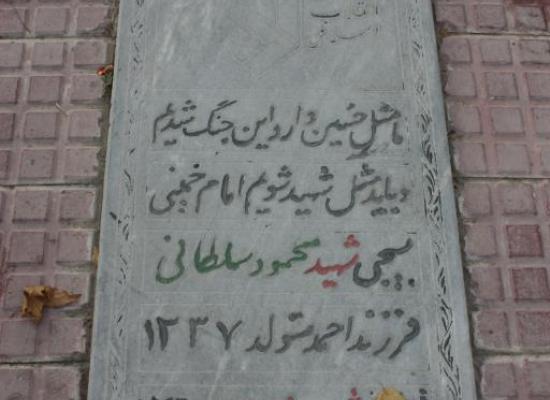 انقلاب
اسلامی
ما مثل حسین وارد این جنگ شدیم
و باید مثل شهید شویم امام خمینی
بسیجی شهید محمود سلطانی
فرزند احمد متولد ۱۳۳۷